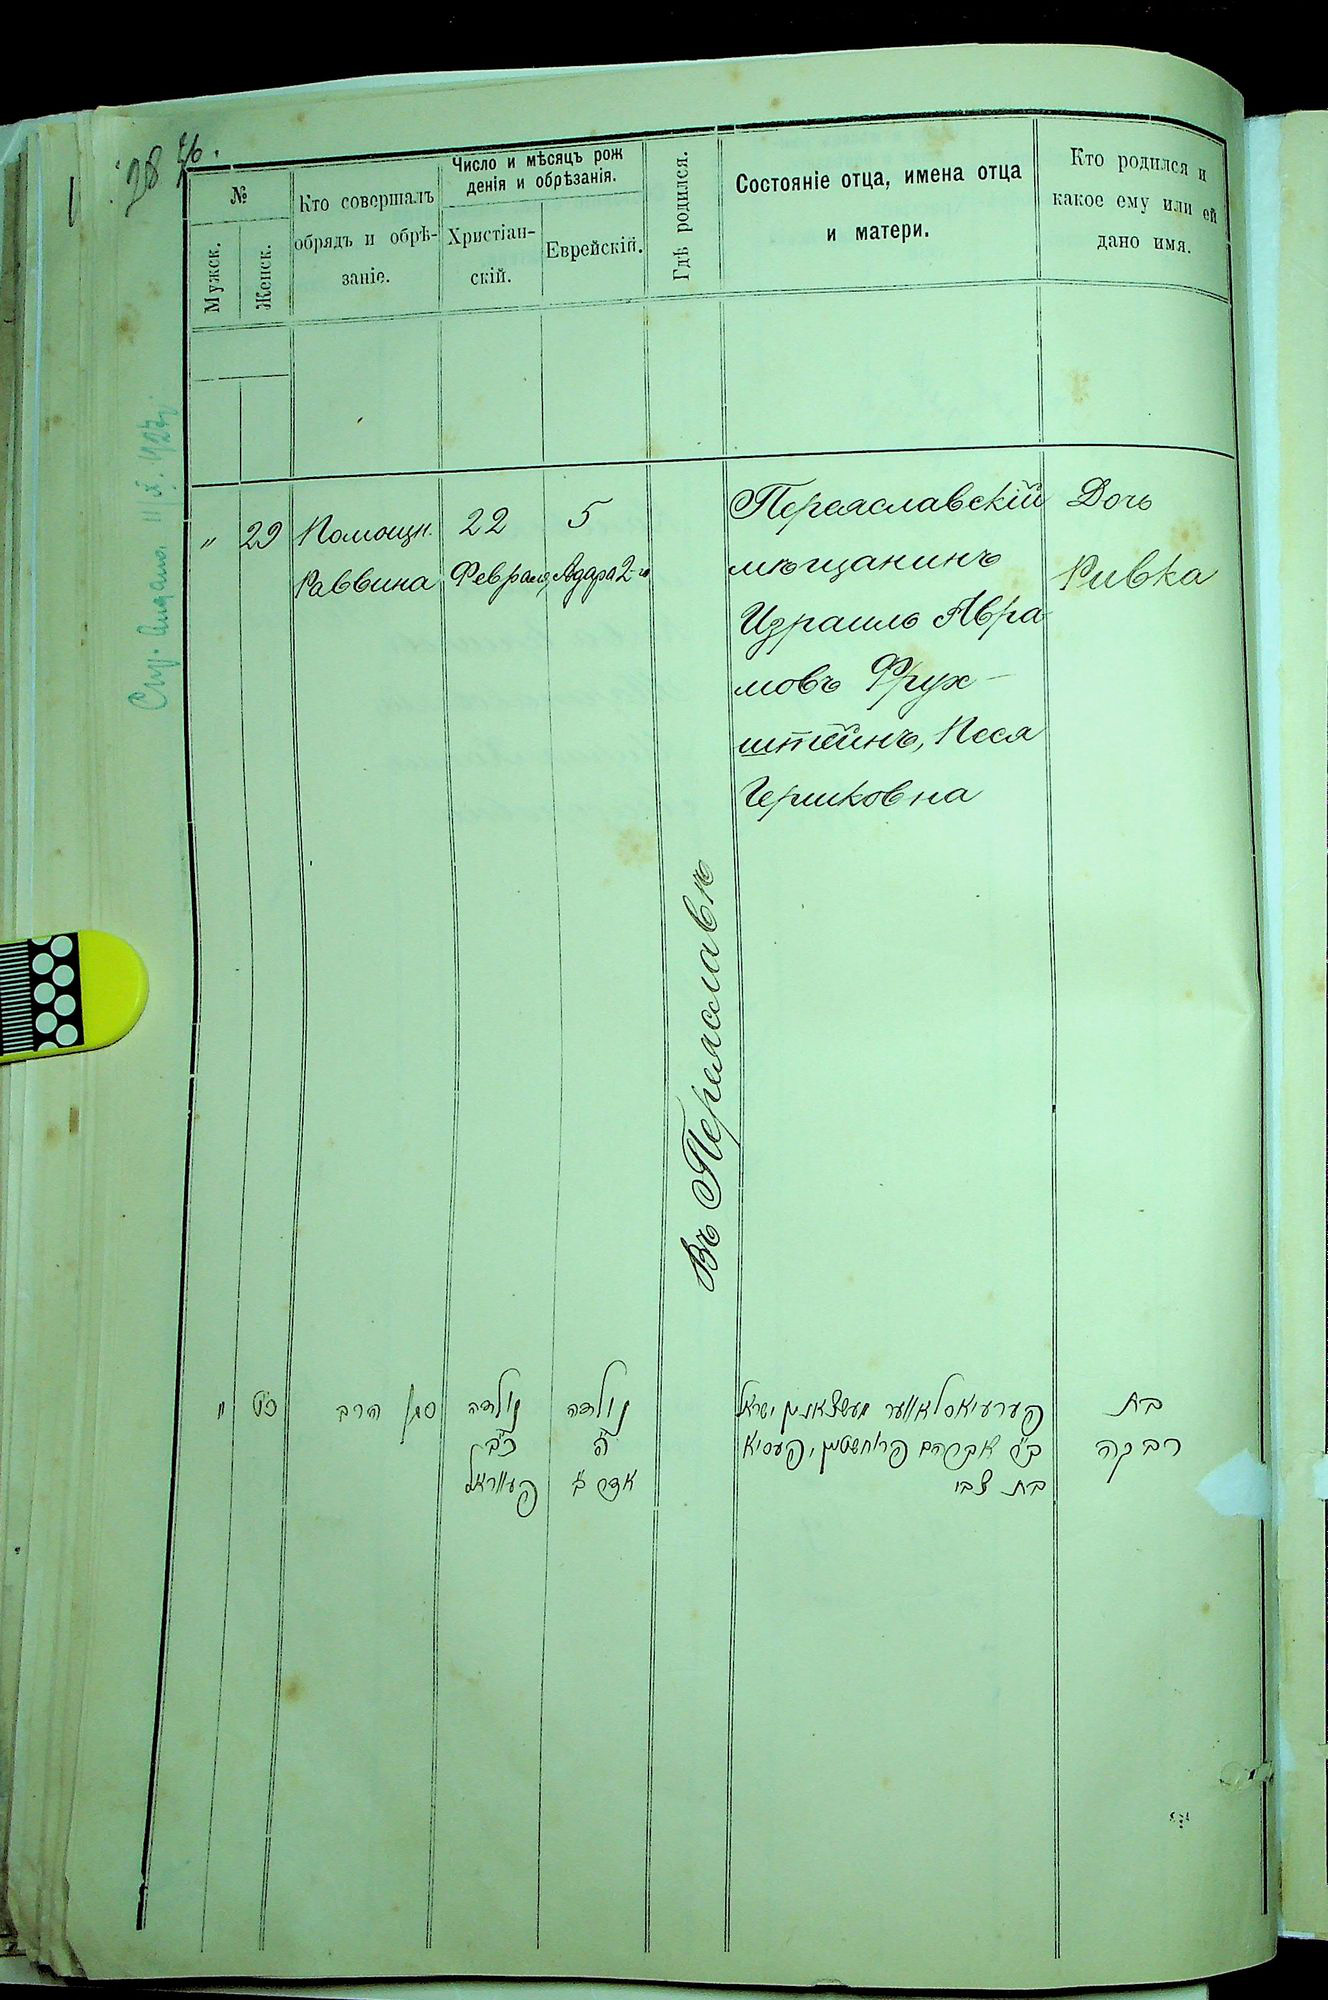 28 об.
№
Мужск.
Женск.
Кто совершалъ
обрядъ и обрѣ-
заніе.
Число и мѣсяцъ рож
денія и обрѣзанія.
Христіан-
скій.
Еврейскій.
Гдѣ родился.
Состояніе отца, имена отца
и матери.
Кто родился и
какое ему или ей
дано имя.
"
29
Помощн.
Раввина
22
Февраля
5
Адара 2-го
Въ Переяславѣ
Переяславскій
мѣщанинъ
Израиль Авра
мовъ Фрух-
штейнъ, Песя
Гершковна
Дочь
Ривка
Спр. выдано. 11/X. 1927 г.
"
כ"ט
סגן הרב
נולדה
כ"ב
פעווראל
נולדה
ה'
אדר ב'
פערעיאסלאווער מעשצאנין ישראל
ב"ר אברהם פרוחשטיין, פעסיא
בת צבי
בת
רבקה